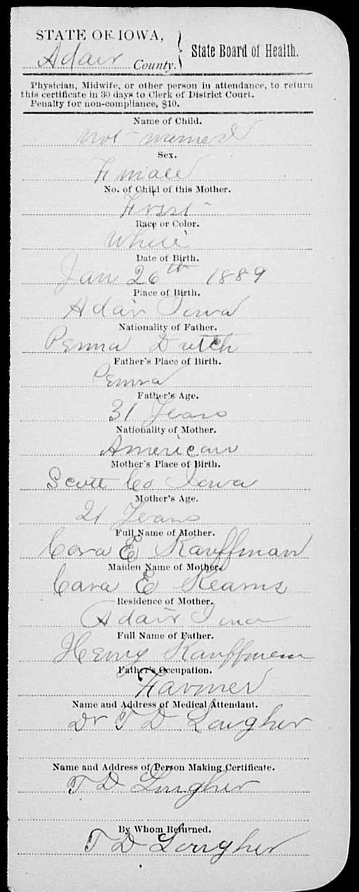 STATE OF IOWA,
Adair County. State Board of Health.
Physician, Midwife, or other person in attendance, to return
this certificate in 30 days to Clerk of District Court.
Penalty for non-compliance, $10.
Name of Child.
not named
Sex.
Female
No. of Child of this Mother.
First
Race or Color.
White
Date of Birth.
Jan 26th 1889
Place of Birth.
Adair Iowa
Nationality of Father.
Penna Dutch
Father's Place of Birth.
Penna
Father's Age.
31 Years
Nationality of Mother.
American
Mother's Place of Birth.
Scott Co Iowa
Mother's Age.
21 Years
Full Name of Mother.
Cora E Kauffman
Maiden Name of Mother.
Cara E Reams
Residence of Mother.
Adair Iowa
Full Name of Father.
Henry Kauffman
Father's Occupation.
Farmer
Name and Address of Medical Attendant.
Dr T D Lougher
Name and Address of Person Making Certificate.
T D Lougher
By Whom Returned.
T D Lougher